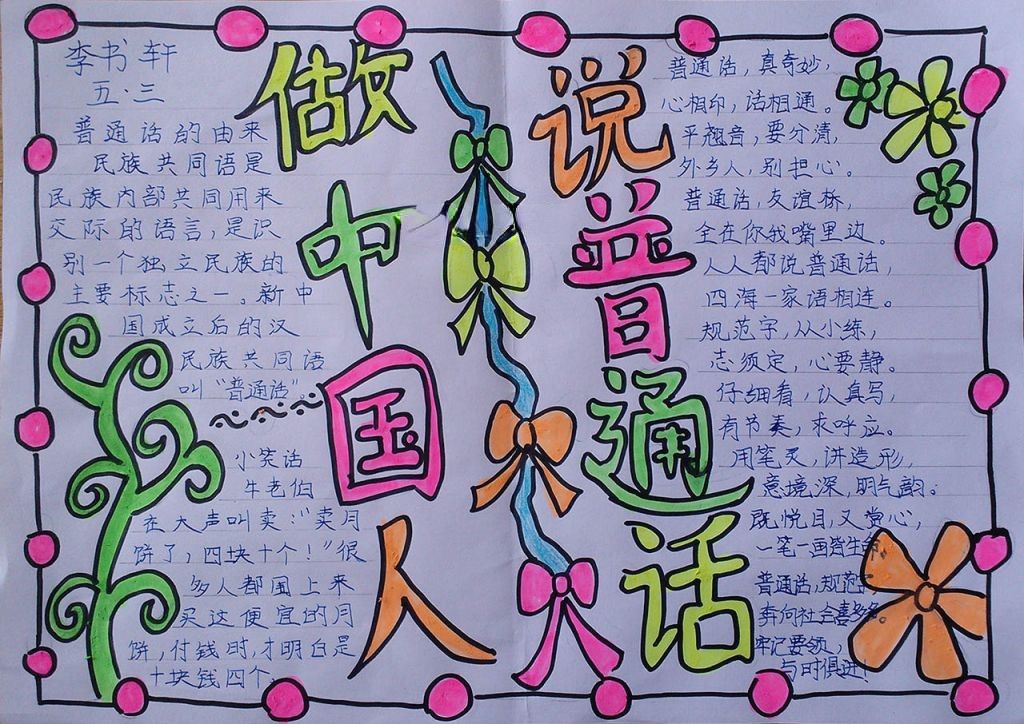 李书轩
五·三
普通话的由来
民族共同语是
民族内部共同用来
交际的语言，是识
别一个独立民族的
主要标志之一。新中
国成立后的汉
民族共同语
叫“普通话”。
小笑话
牛老伯
在大声叫卖：“卖月
饼了，四块十个！”很
多人都围上来
买这便宜的月
饼，付钱时，才明白是
十块钱四个
做中国人
说普通话
普通话，真奇妙，
心相印，话相通。
平翘音，要分清，
外乡人，别担心。
普通话，友谊桥，
全在你我嘴里边。
人人都说普通话，
四海一家语相连。
规范字，从小练，
志须定，心要静。
仔细看，认真写，
有节奏，求呼应。
用笔灵，讲造形，
意境深，明气韵。
既悦目，又赏心，
一笔一画皆生命。
普通话，规范字
奔向社会喜多多。
牢记要领，
与时俱进！